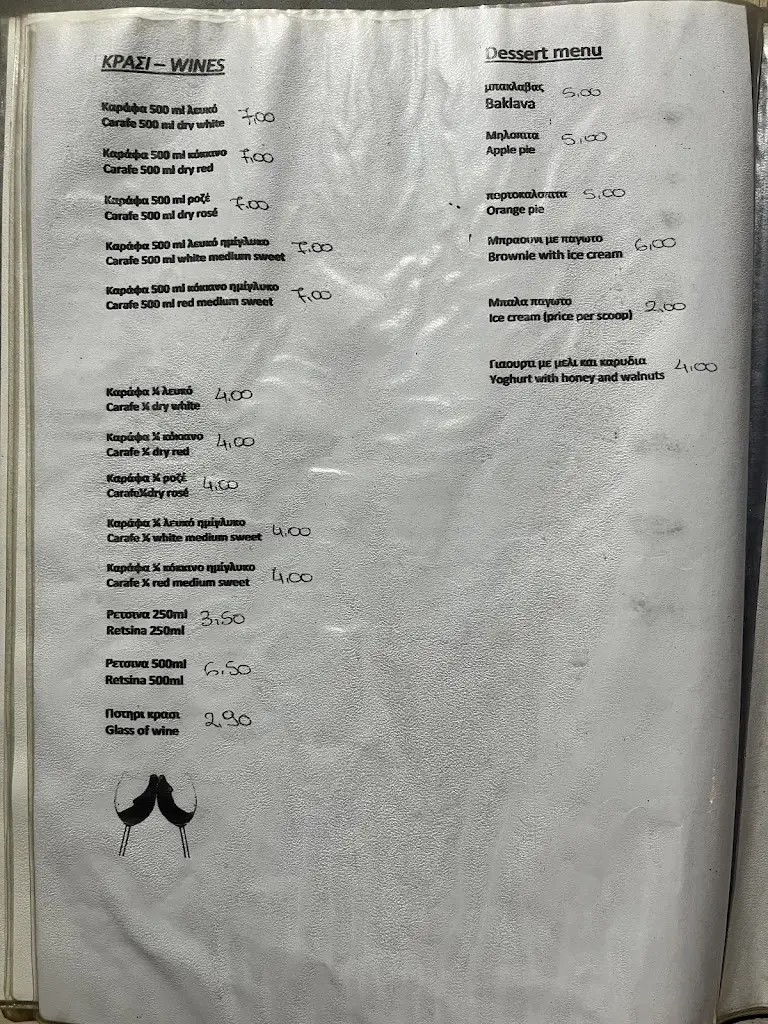 ΚΡΑΣΙ – WINES
Καράφα 500 ml λευκό
Carafe 500 ml dry white 7,00
Καράφα 500 ml κόκκινο
Carafe 500 ml dry red 7,00
Καράφα 500 ml ροζέ
Carafe 500 ml dry rosé 7,00
Καράφα 500 ml λευκό ημίγλυκο
Carafe 500 ml white medium sweet 7,00
Καράφα 500 ml κόκκινο ημίγλυκο
Carafe 500 ml red medium sweet 7,00
Καράφα ¼ λευκό
Carafe ¼ dry white 4,00
Καράφα ¼ κόκκινο
Carafe ¼ dry red 4,00
Καράφα ¼ ροζέ
Carafe¼dry rosé 4,00
Καράφα ¼ λευκό ημίγλυκο
Carafe ¼ white medium sweet 4,00
Καράφα ¼ κόκκινο ημίγλυκο
Carafe ¼ red medium sweet 4,00
Ρετσινα 250ml
Retsina 250ml 3,50
Ρετσινα 500ml
Retsina 500ml 6,50
Ποτηρι κρασι
Glass of wine 2,90
Dessert menu
μπακλαβας
Baklava 5,00
Μηλοπιτα
Apple pie 5,00
πορτοκαλοπιτα
Orange pie 5,00
Μπραουνι με παγωτο
Brownie with ice cream 6,00
Μπαλα παγωτο
Ice cream (price per scoop) 2,00
Γιαουρτι με μελι και καρυδια
Yoghurt with honey and walnuts 4,00